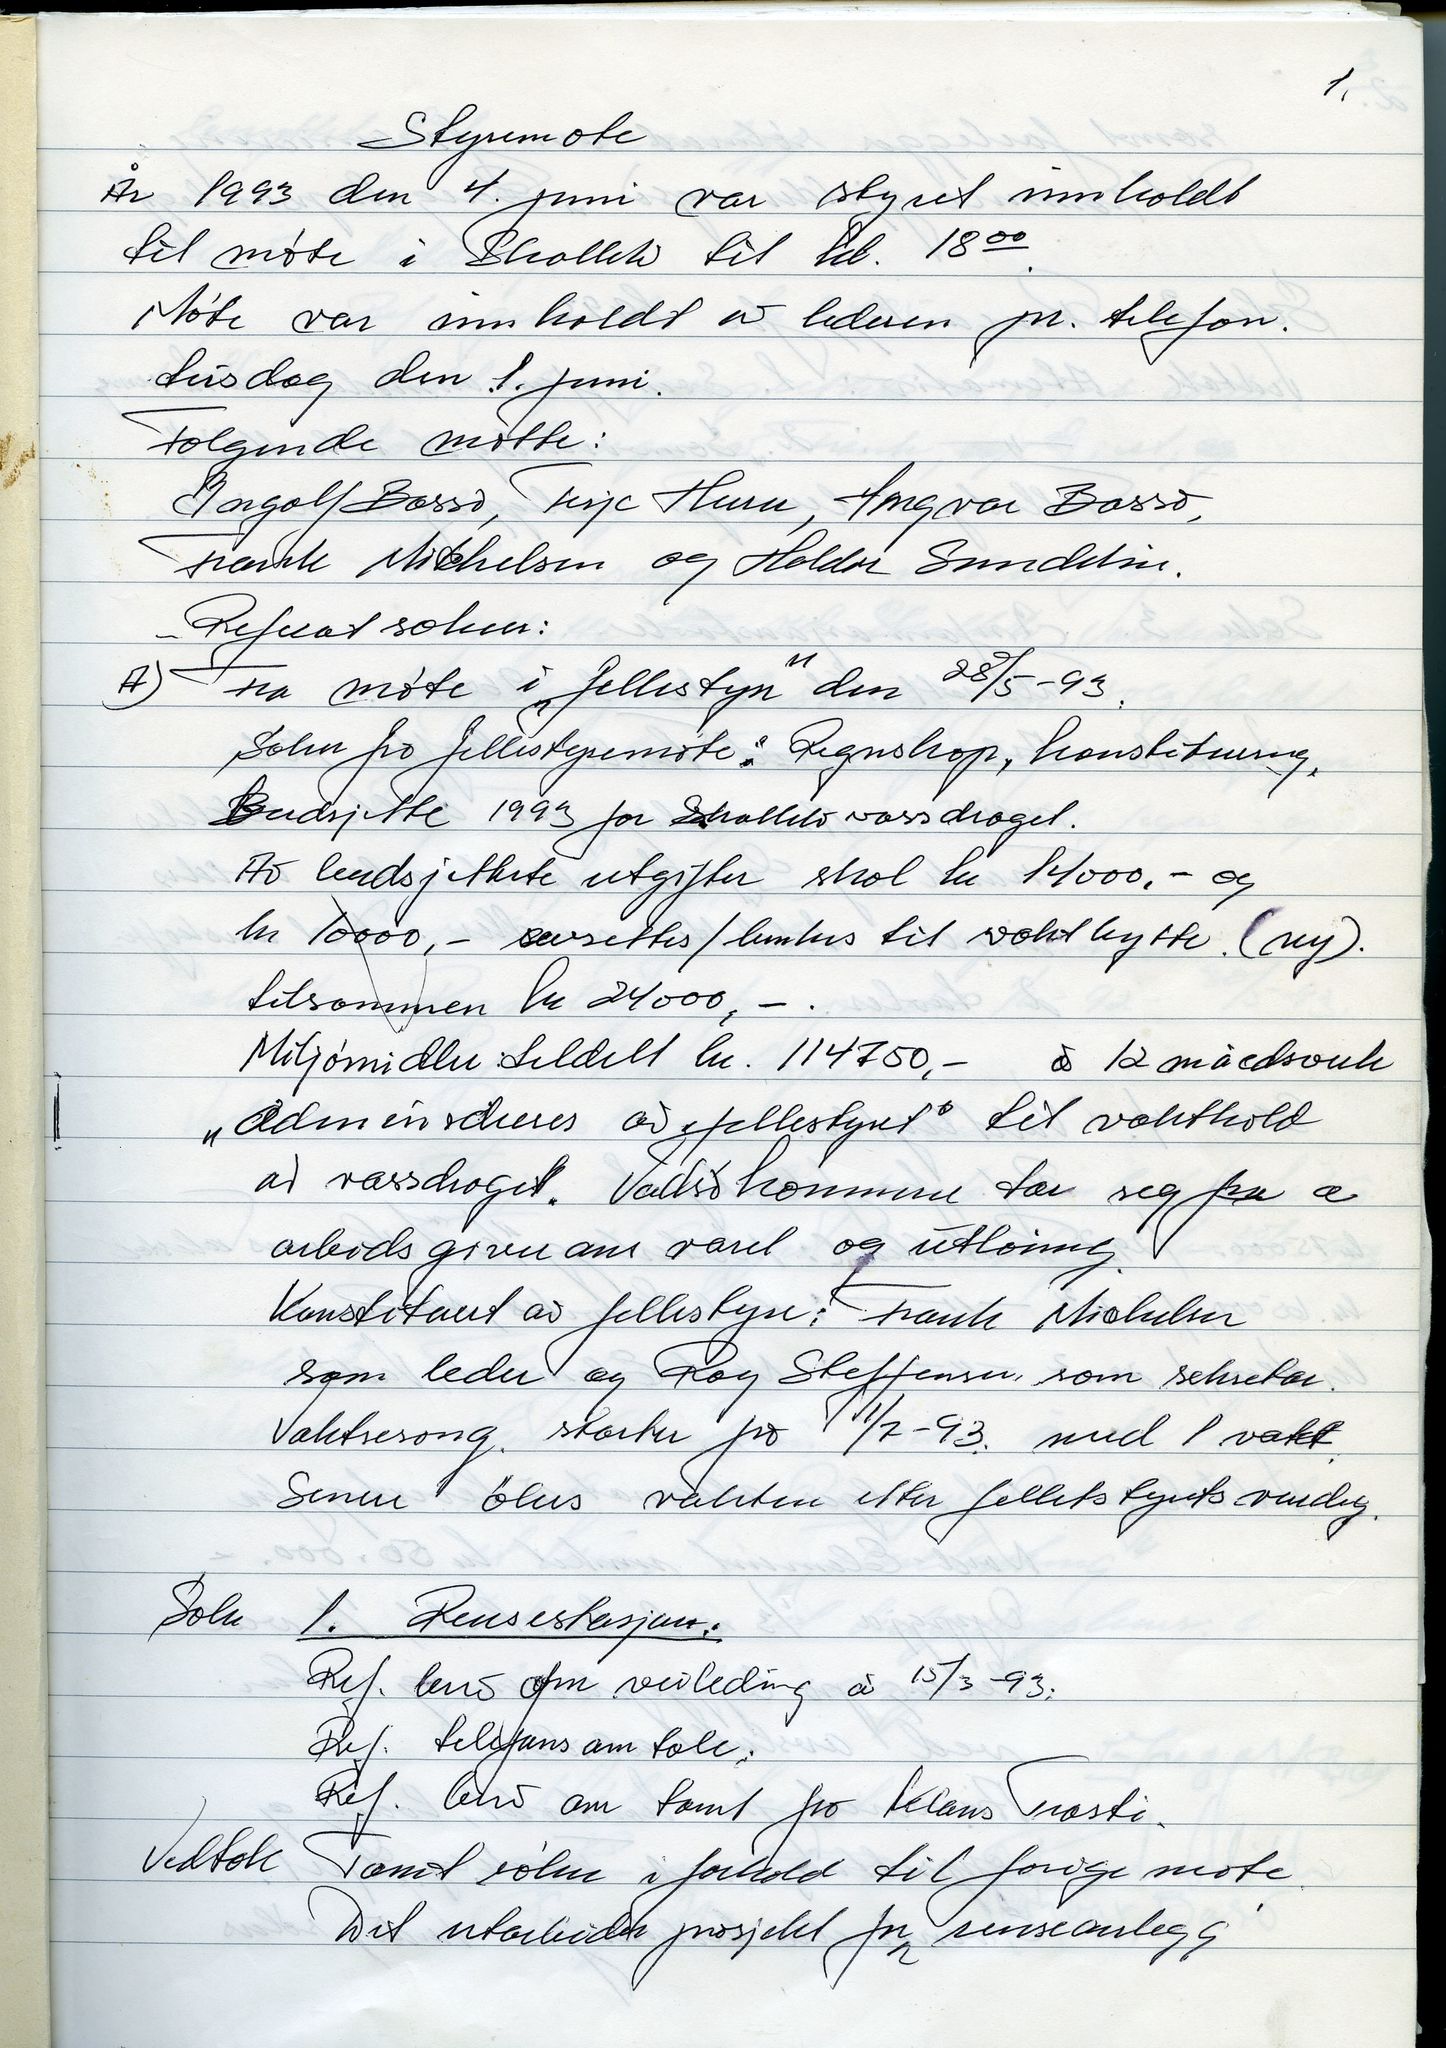 1.
Styremøte
År 1993 den 4. juni var styret innkaldt
til møte i Skallelv til kl. 18 00.
Møte var innkaldt av lederen pr. telefon.
tirsdag den 1. juni.
Følgende møtte:
Ingolf Bassø, Terje Huru, Yngvar Bassø,
Frank Mickelsen og Haldor Sundelin.
- Referat saker:
A) Fra møte i "fellestyre" den 28/5-93.
Saker fra fellestyremøte: Regnskap, konstituering,
Budsjette 1993 for Skallelv vassdraget.
Av budsjetterte utgifter skal kr 14000,- og
kr 10000,- avsettes/brukes til vakthytte. (ny).
tilsammen kr 24000,-.
Miljømidler tildelt kr. 114750,- à 12 månedsverk
"administreres av fellestyret" til vakthold
av vassdraget. Vadsø kommune tar seg fra a
arbeidsgiveransvaret og utløning.
Konstituert av fellestyre: Frank Michelsen
som leder og Roy Steffensen som sekretær.
Vaktsesong starter fra 1/7-93. med 1 vakt.
Senere økes vakten etter felletstyrets vurdering.
Sak 1. Rensestasjon:
Ref. brev om veiledning av 15/3-93.
Ref. telefonsamtale.
Ref. brev om tomt fra Klaus Trasti.
Vedtak Tomt søkes i forhold til forige møte.
Det utarbeides prosjekt for renseanlegg